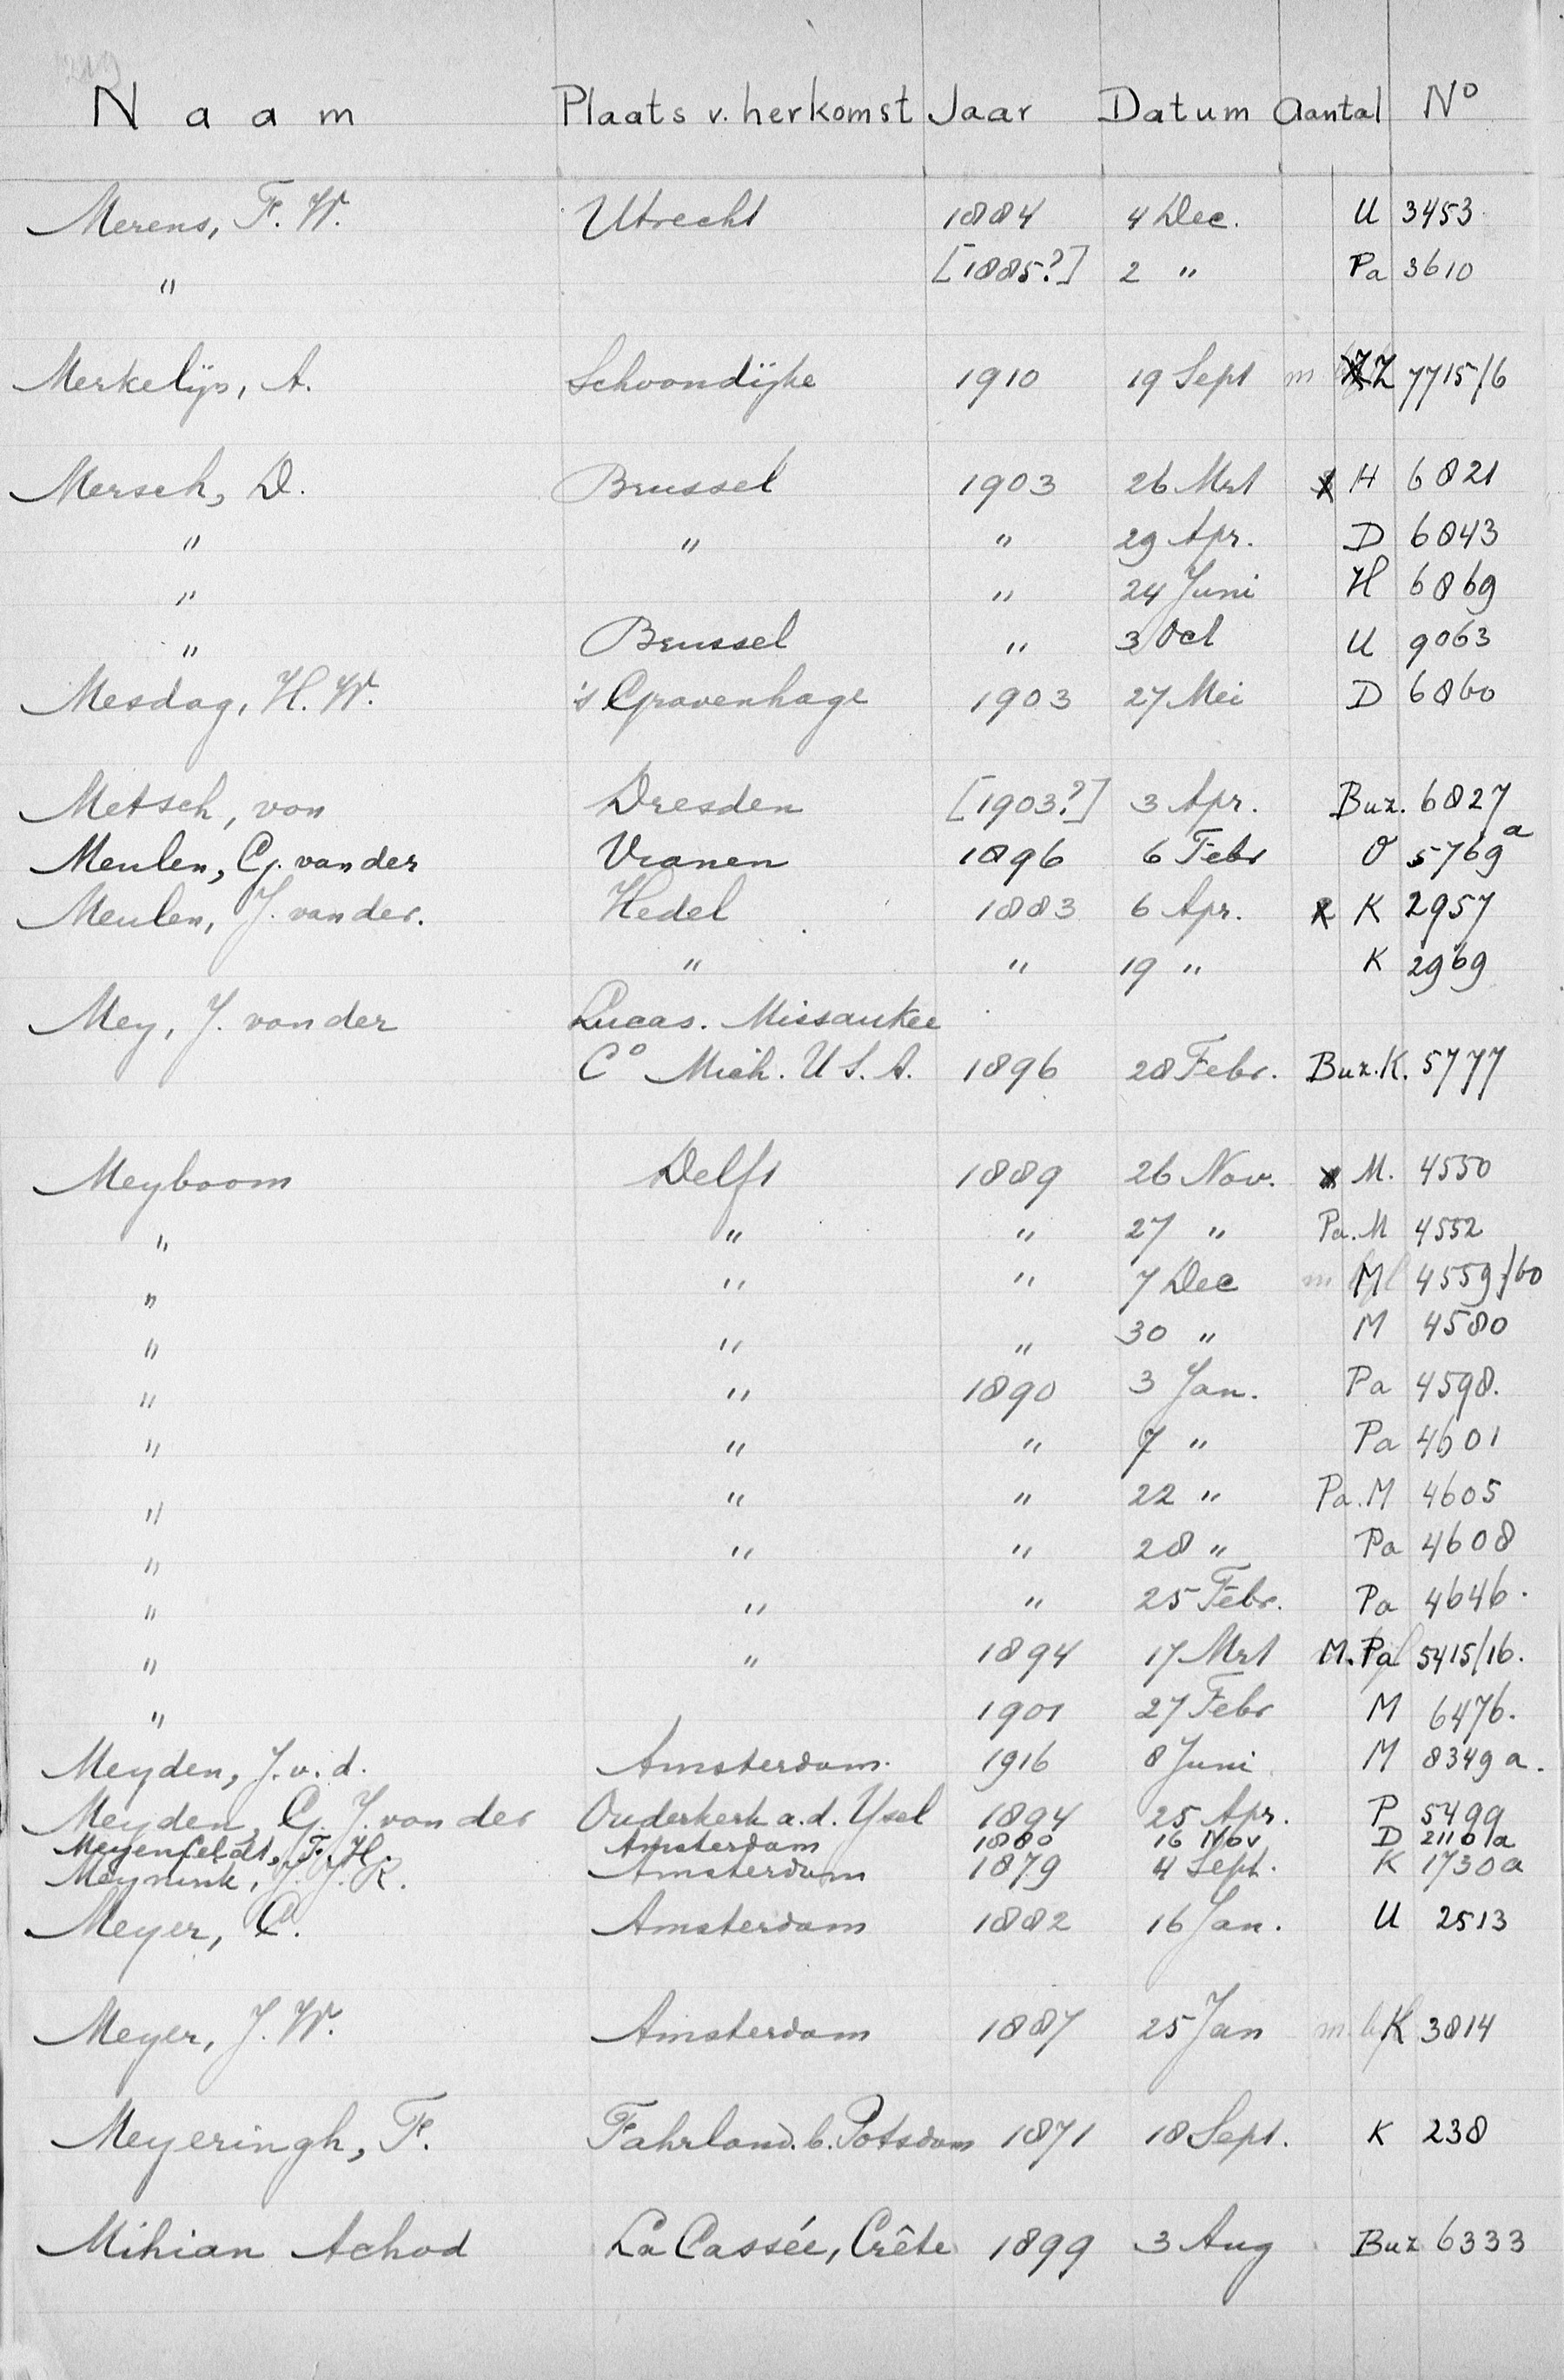 Naam Plaats v. herkomst Jaar Datum Aantal No
Merens, F. W. Utrecht 1884 4 Dec. U 3453
" [1885?] 2 " Pa 3610
Merkelijn, A. Schoondijke 1910 19 Sept m Z 7715/6
Mersch, D. Brussel 1903 26 Mrt H 6821
" " " 29 Apr. D 6843
" " 24 Juni H 6869
" Brussel " 3 Oct U 9063
Mesdag, H. W. 's Gravenhage 1903 27 Mei D 6860
Metsch, von Dresden [1903?] 3 Apr. Buz. 6827
Meulen, G. van der Vianen 1896 6 Febr O 5769a
Meulen, J. van der. Hedel 1883 6 Apr. K 2957
" " 19 " K 2969
Mey, J. van der Lucas. Missaukee
Co Mich. U.S.A. 1896 28 Febr. Buz. K. 5777
Meyboom Delft 1889 26 Nov. M. 4550
" " " 27 " Pa. M 4552
" " " 7 Dec m M 4559/60
" " " 30 " M 4580
" " 1890 3 Jan. Pa 4598.
" " " 7 " Pa 4601
" " " 22 " Pa. M 4605
" " " 28 " Pa 4608
" " " 25 Febr. Pa 4646.
" " 1894 17 Mrt M. Pa 5415/16.
" 1901 27 Febr M 6476.
Meyden, J. v. d. Amsterdam 1916 8 Juni M 8349 a.
Meyden, G. J. van der Ouderkerk a.d. Ysel 1894 25 Apr. P 5499
Meyenfeldt, F. H. Amsterdam 1880 16 Nov D 2110 a
Meynink, J. J. R. Amsterdam 1879 4 Sept. K 1730 a
Meyer, C. Amsterdam 1882 16 Jan. U 2513
Meyer, J. W. Amsterdam 1887 25 Jan m. K 3814
Meyeringh, F. Fahrland. b. Potsdam 1871 18 Sept. K 238
Mihian Achod La Cassée, Crête 1899 3 Aug Buz 6333